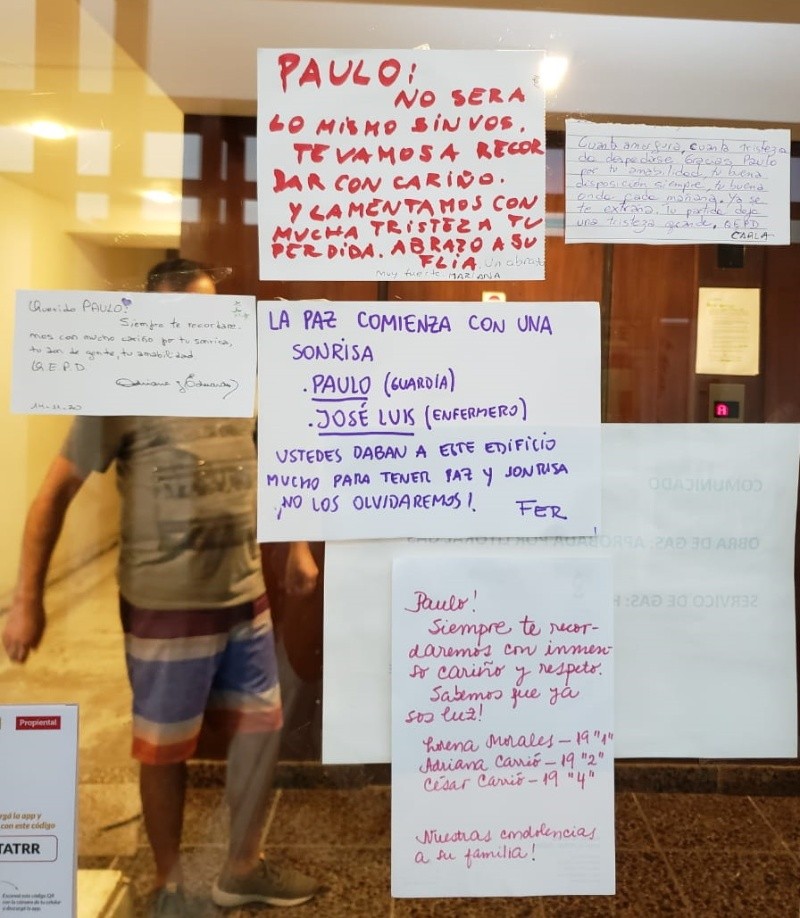 PAULO!
NO SERA
LO MISMO SIN VOS.
TE VAMOS A RECOR
DAR CON CARIÑO.
Y LAMENTAMOS CON
MUCHA TRISTEZA TU
PERDIDA. ABRAZO A SU
FLIA. Un abrazo
muy fuerte MARIANA
Cuanta amargura, cuanta tristeza
da despedirse. Gracias Paulo
por tu amabilidad, tu buena
disposición siempre, tu buena
onda cada mañana. Ya se
te extraña. Tu partida deja
una tristeza grande. QEPD
CARLA
Querido PAULO!
Siempre te recordare-
mos con mucho cariño por tu sonrisa,
tu don de gente, tu amabilidad
Q.E.P.D.
Adriana y Eduardo
LA PAZ COMIENZA CON UNA
SONRISA
. PAULO (GUARDIA)
. JOSÉ LUIS (ENFERMERO)
USTEDES DABAN A ESTE EDIFICIO
MUCHO PARA TENER PAZ Y SONRISA
¡NO LOS OLVIDAREMOS! FER
Paulo!
Siempre te recor-
daremos con inmen-
so cariño y respeto.
Sabemos que ya
sos luz!
Lorena Morales - 19 "1"
Adriana Carrió - 19 "2"
César Carrió - 19 "4"
Nuestras condolencias
a su familia!
COMUNICADO
OBRA DE GAS: APROBADA POR LITORAL GAS
SERVICO DE GAS:
Propiental
rgá la app y
con este código
TATRR
Escaneá este código QR
con la cámara de tu celular
y descargá la app.